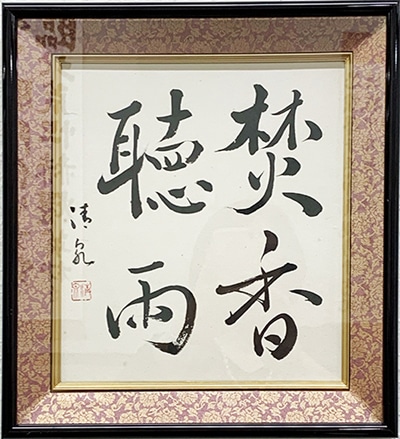 焚香
聽雨
清泉